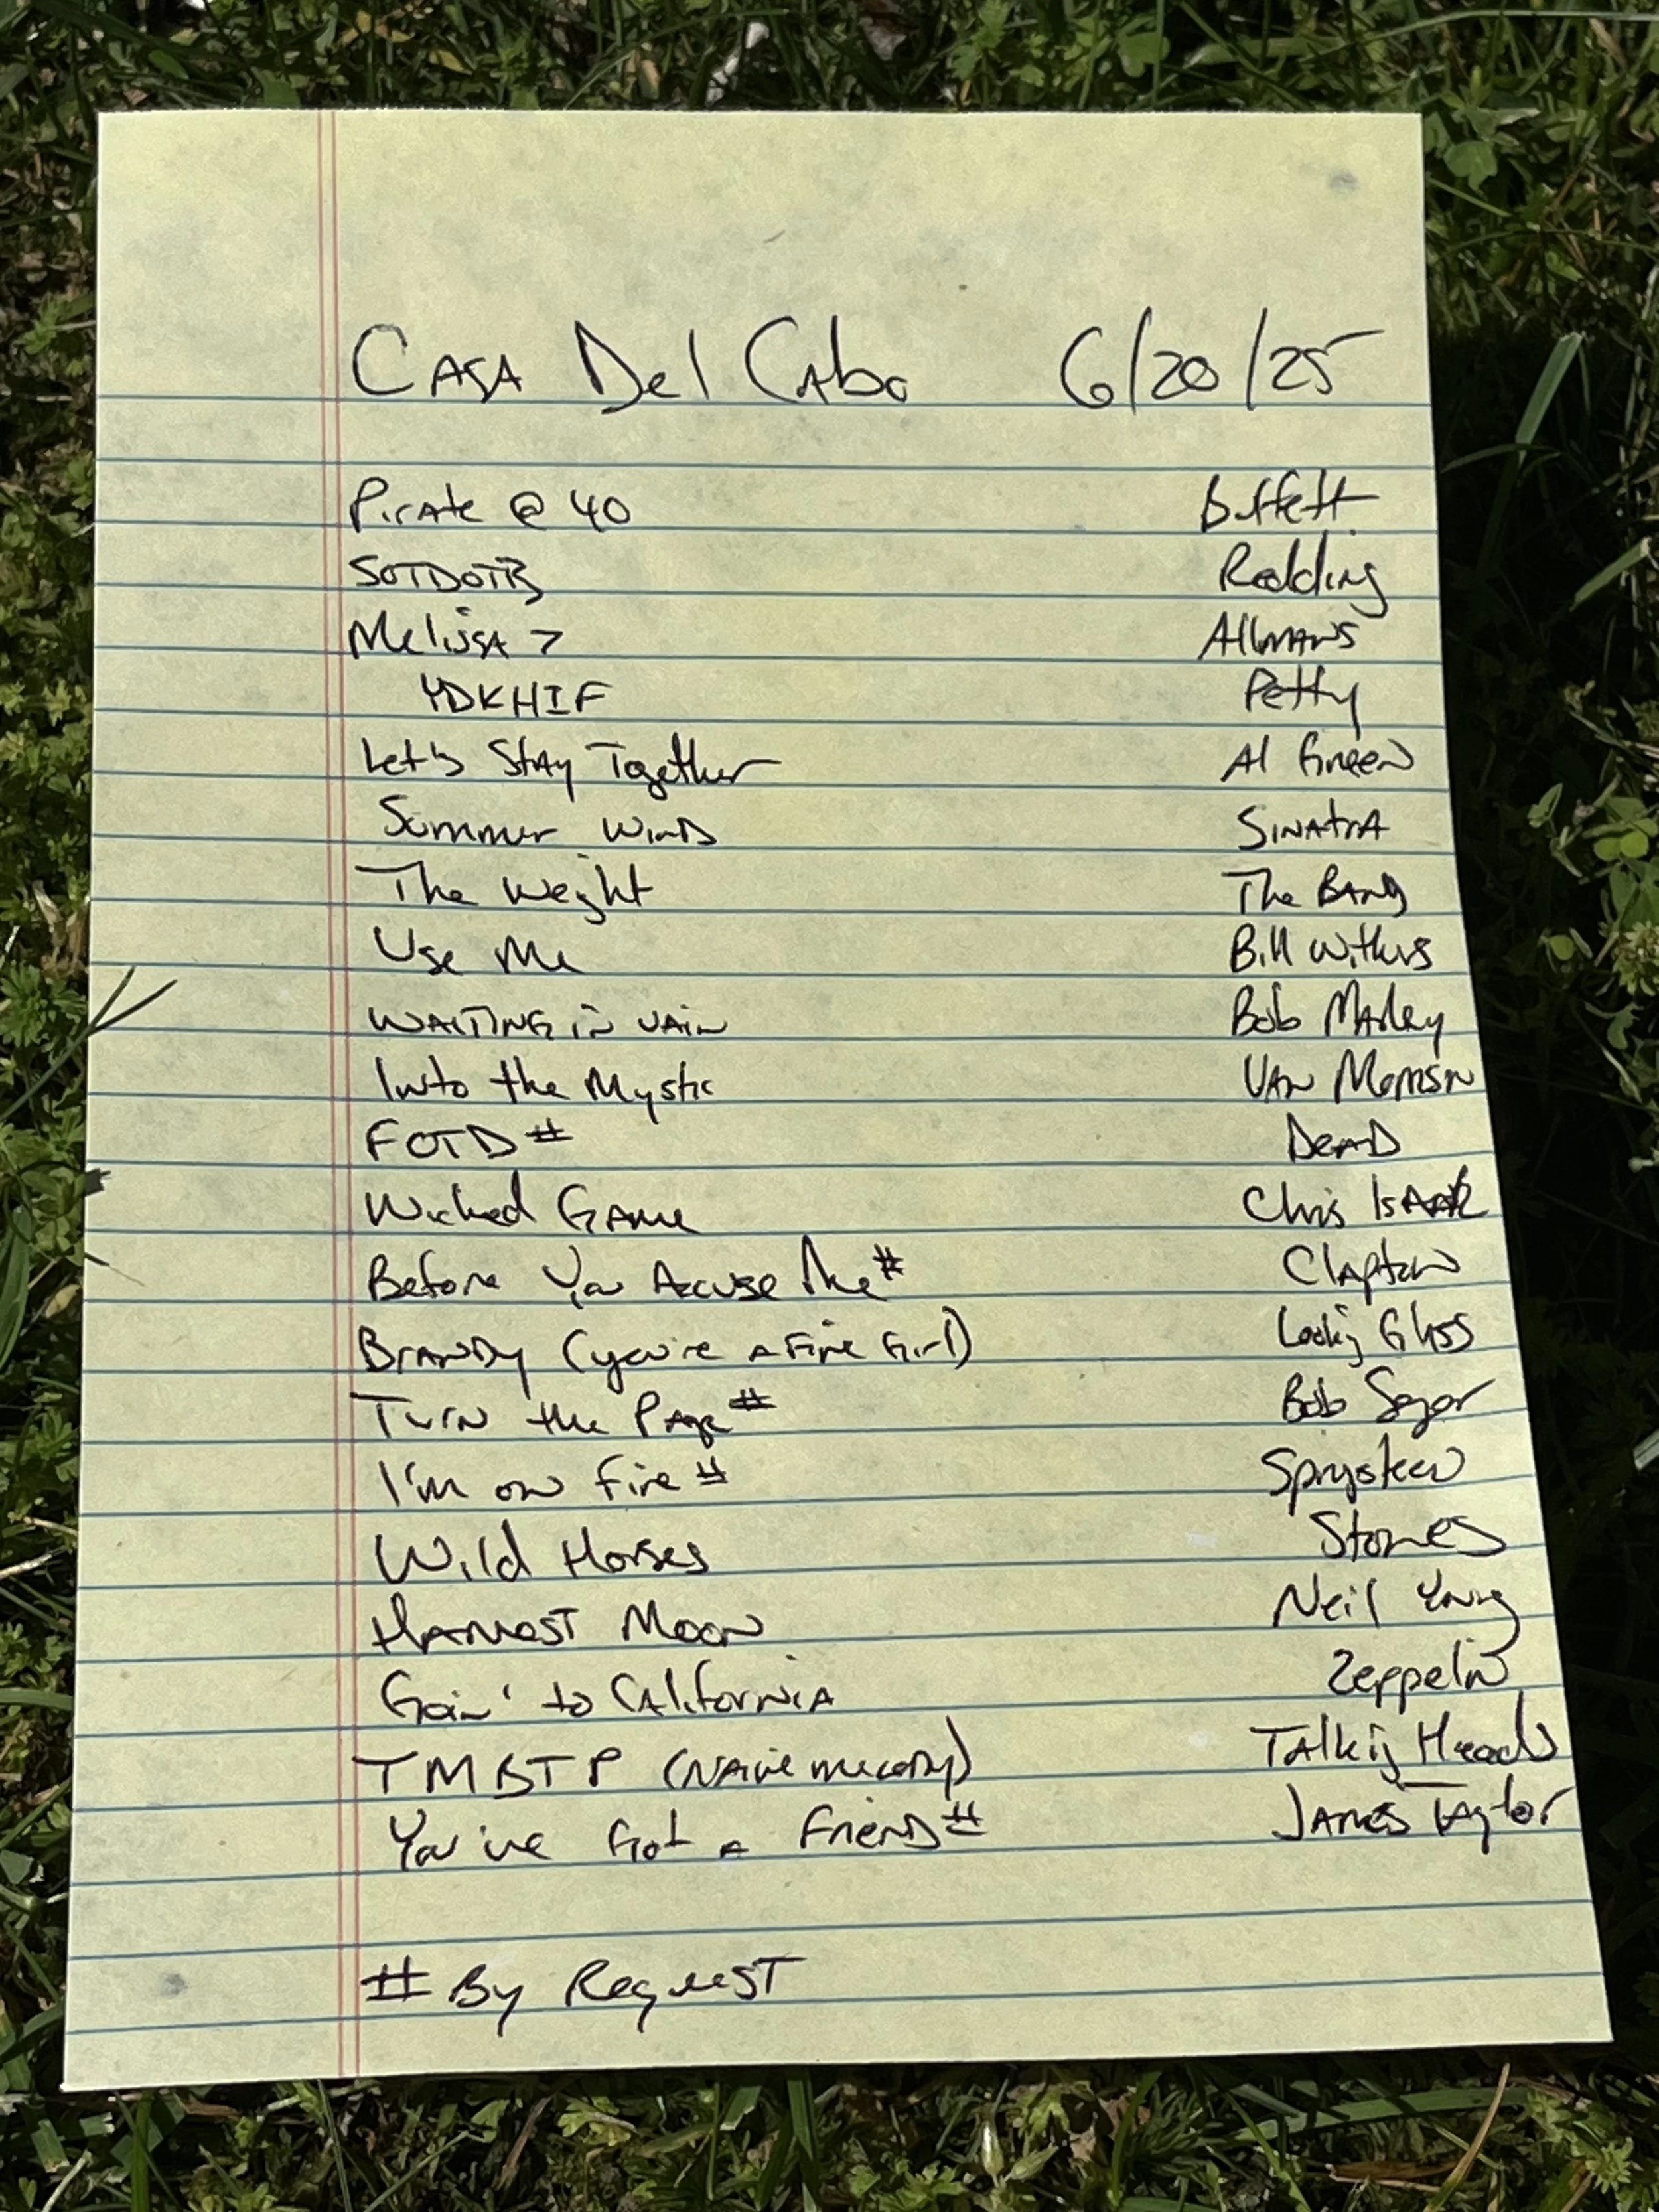 Casa Del Cabo 6/20/25
Pirate @ 40 Buffett
SOTDOTB Redding
Melissa > Allmans
YDKHIF Petty
Let's Stay Together Al Green
Summer Wind Sinatra
The Weight The Band
Use Me Bill Withers
Waiting in Vain Bob Marley
Into the Mystic Van Morrison
FOTD # Dead
Wicked Game Chris Isaak
Before You Accuse Me # Clapton
Brandy (you're a fine girl) Looking Glass
Turn the Page # Bob Seger
I'm on Fire # Springsteen
Wild Horses Stones
Harvest Moon Neil Young
Goin' to California Zeppelin
TMBTP (Naive melody) Talking Heads
You've Got a Friend # James Taylor
# By Request